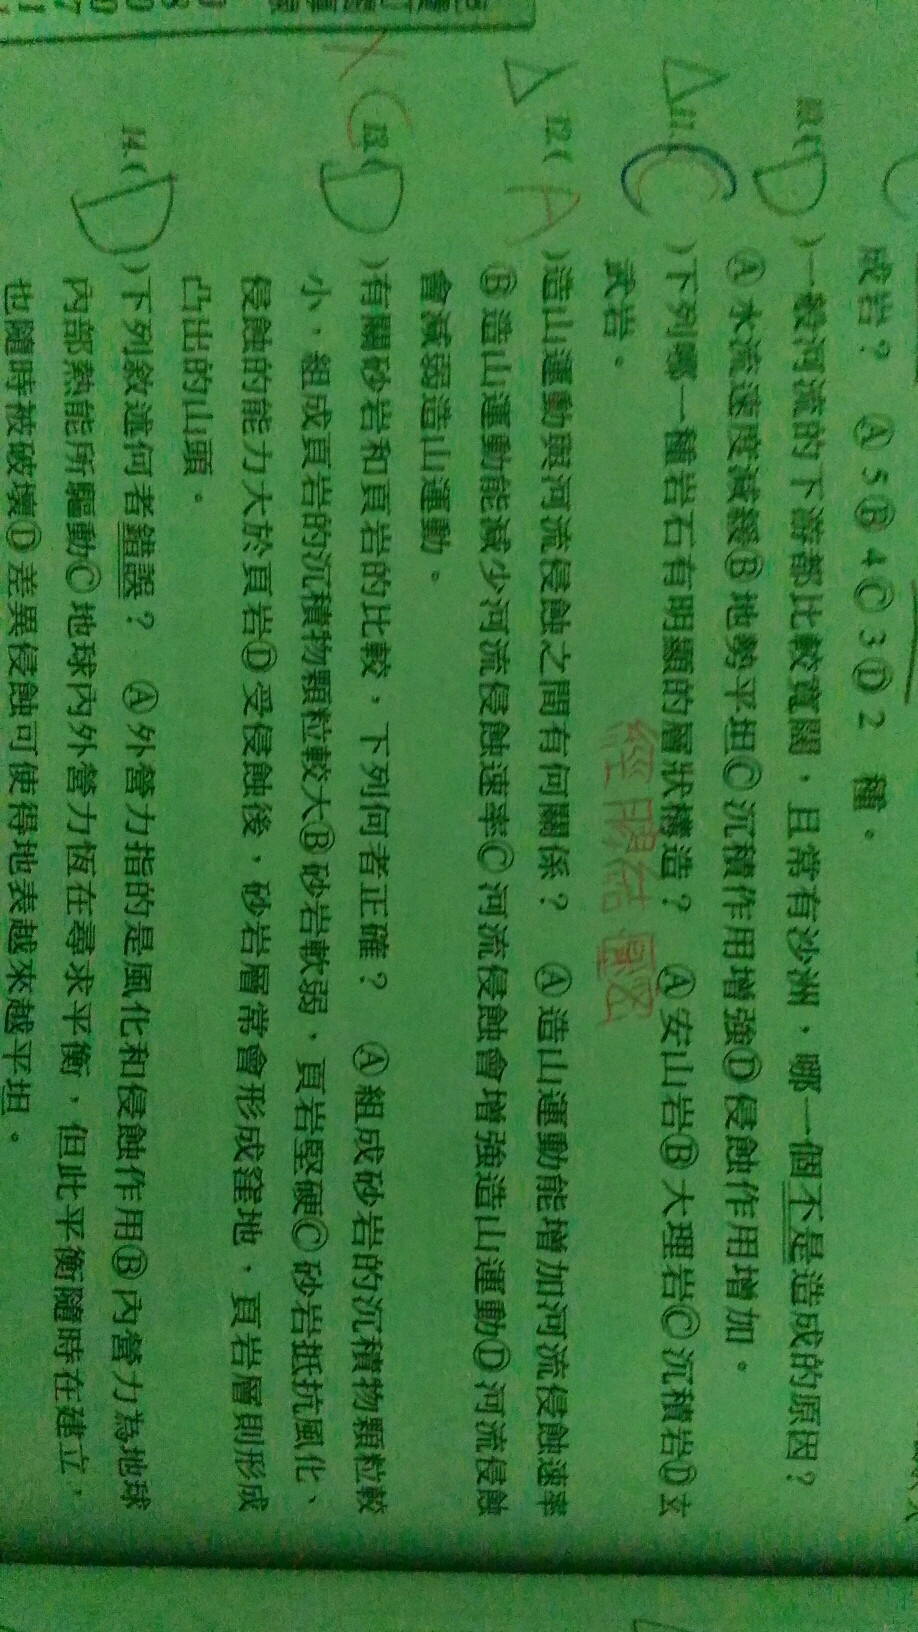 成岩？ Ⓐ5Ⓑ4Ⓒ3Ⓓ2 種。
10.(D)一般河流的下游都比較寬闊，且常有沙洲，哪一個不是造成的原因？
Ⓐ水流速度減緩Ⓑ地勢平坦Ⓒ沉積作用增強Ⓓ侵蝕作用增加。
△11.(C)下列哪一種岩石有明顯的層狀構造？ Ⓐ安山岩Ⓑ大理岩Ⓒ沉積岩Ⓓ玄
武岩。
經膠結
△12.(A)造山運動與河流侵蝕之間有何關係？ Ⓐ造山運動能增加河流侵蝕速率
Ⓑ造山運動能減少河流侵蝕速率Ⓒ河流侵蝕會增強造山運動Ⓓ河流侵蝕
會減弱造山運動。
C 13.(D)有關砂岩和頁岩的比較，下列何者正確？ Ⓐ組成砂岩的沉積物顆粒較
小，組成頁岩的沉積物顆粒較大Ⓑ砂岩軟弱，頁岩堅硬Ⓒ砂岩抵抗風化、
侵蝕的能力大於頁岩Ⓓ受侵蝕後，砂岩層常會形成窪地，頁岩層則形成
凸出的山頭。
14.(D)下列敘述何者錯誤？ Ⓐ外營力指的是風化和侵蝕作用Ⓑ內營力為地球
內部熱能所驅動Ⓒ地球內外營力恆在尋求平衡，但此平衡隨時在建立，
也隨時被破壞Ⓓ差異侵蝕可使得地表越來越平坦。